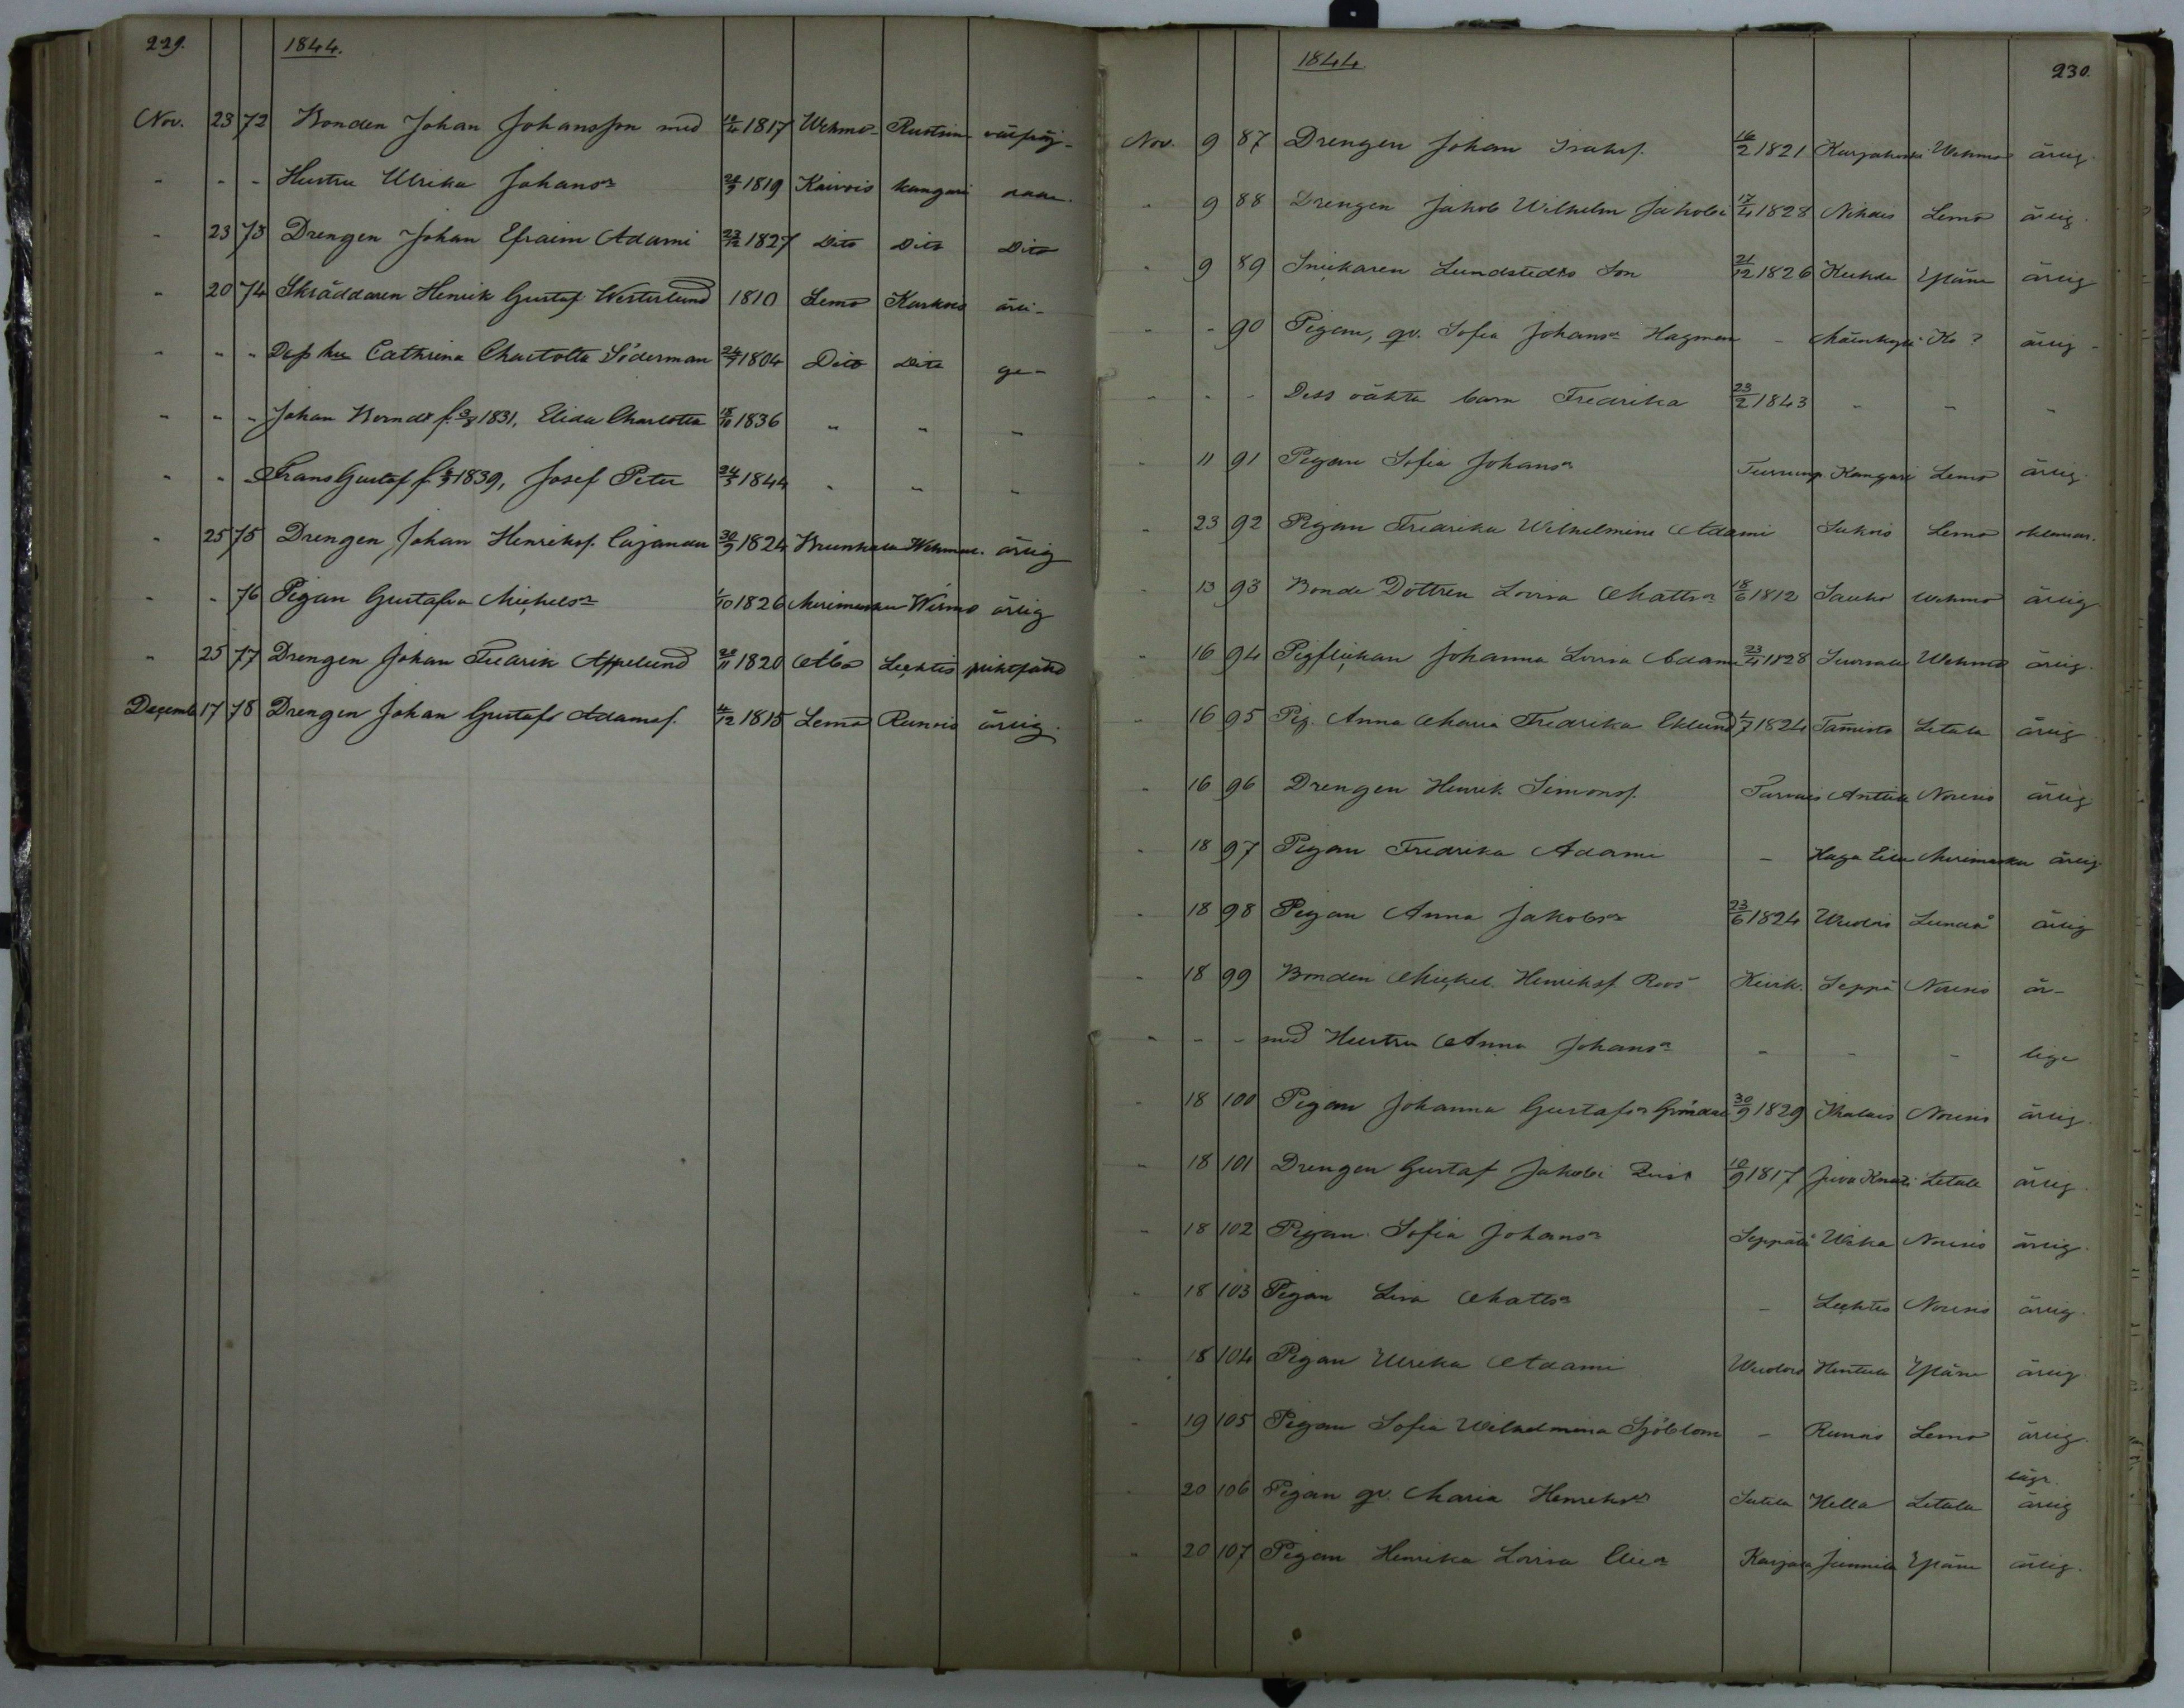 229. 1844.
Nov. 23 72 Bonden Johan Johansson med 1817 Wehmo Rustsin välfräj-
" - - Hustru Ulrika Johansr 1819 Kaivois kangari
" 23 73 Drengen Johan Efraim Adami 23/12 1827 Dito Dito Dito
" 20 74 Skräddaren Henrik Gustaf Westerlund 1810 Lemo Karkois ärli-
" " " Dess hu Cathrina Charlotta Söderman 24/7 1804 Dito Dito ge-
" " " Johan Berndt f. 3/8 1831, Elida Charlotta 18/10 1836 " " "
" " " Frans Gustaf f. 1839, Josef Peter 24/3 1844 " " "
" 25 75 Drengen Johan Henriksf. Cajander 30/9 1824 Brunkala Wehmo ärlig
" " 76 Pigan Gustafva Michelsr 1/10 1826 Merimasku Wirmo ärlig
" 25 77 Drengen Johan Fredrik Appelund 1820 Åbo Lechtis
Decemb 17 78 Drengen Johan Gustaf Adamsf. 4/12 1815 Lemo Runois ärlig.
1844 230.
Nov. 9 87 Drengen Johan Isaksf. 16/2 1821 Karjakoski Wehmo ärlig.
" 9 88 Drengen Jakob Wilhelm Jakobi 17/4 1828 Nihois Lemo ärlig.
" 9 89 Snickaren Lundstedts Son 21/12 1826 Kuhda Ypäne ärlig
" " 90 Pigan, qv. Sofia Johansr Hagman - Mäenkylä Ko ? ärlig -
" " - Dess oäkta barn Fredrika 23/2 1843 - - -
" 11 91 Pigan Sofia Johansr Kangari Lemo ärlig
" 23 92 Pigan Fredrika Wilhelmina Adami Sukois Lemo oklanderl.
" 13 93 Bonde Dottren Lovisa Mattsr 18/6 1812 Sauko Wehmo ärlig
" 16 94 Pigflickan Johanna Lovisa Adami 23/4 1828 Suovala Wehmo ärlig.
" 16 95 Pig. Anna Maria Fredrika Eklund 1/7 1824 Tamisto Letala ärlig
" 16 96 Drengen Henrik Simonsf. Tarvais Anttila Nousis ärlig
" 18 97 Pigan Fredrika Adami - Haga Eila Merimasku ärlig
" 18 98 Pigan Anna Jakobsr 23/6 1824 Wuolois Lundå ärlig
" 18 99 Bonden Mickel Henriksf. Roos Kivik. Seppä Nousis är-
" - - med Hustru Anna Johansr - - - lige
" 18 100 Pigan Johanna Gustafsr Gröndal 30/9 1829 Ihalais Nousis ärlig.
" 18 101 Drengen Gustaf Jakobi 10/9 1817 Juva Knuti Letala ärlig
" 18 102 Pigan Sofia Johansr Seppälä Wika Nousis ärlig.
" 18 103 Pigan Lisa Mattsr - Lechtis Nousis ärlig
" 18 104 Pigan Ulrika Adami Wuolois Hintula Ypäne ärlig
" 19 105 Pigan Sofia Wilhelmina Sjöblom - Runois Lemo ärlig
" 20 106 Pigan qv. Maria Henriksr Sutela Hella Letala lägr. ärlig
" 20 107 Pigan Henrika Lovisa Eliær Karjala Junnila Ypäne ärlig.